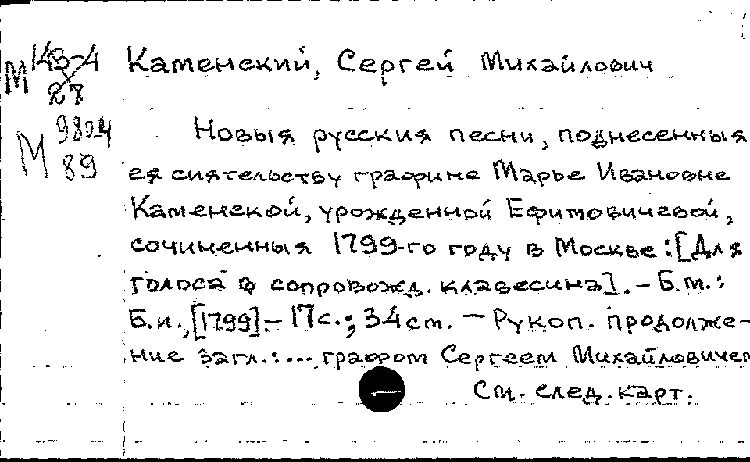 М КЗ-4
27
Каменский, Сергей Михайлович
М 980-4
89
Новыя русския песни, поднесенныя
ея сиятельству графине Марье Ивановне
Каменской, урожденной Ефимовичевой,
сочиненныя 1799-го году в Москве: [Для
голоса в сопровожд. клавесина]. – Б.м.:
Б.и., [1799]. – 17с.; 34см. – Рукоп. продолже-
ние загл.: ... графом Сергеем Михайловичем
См. след. карт.